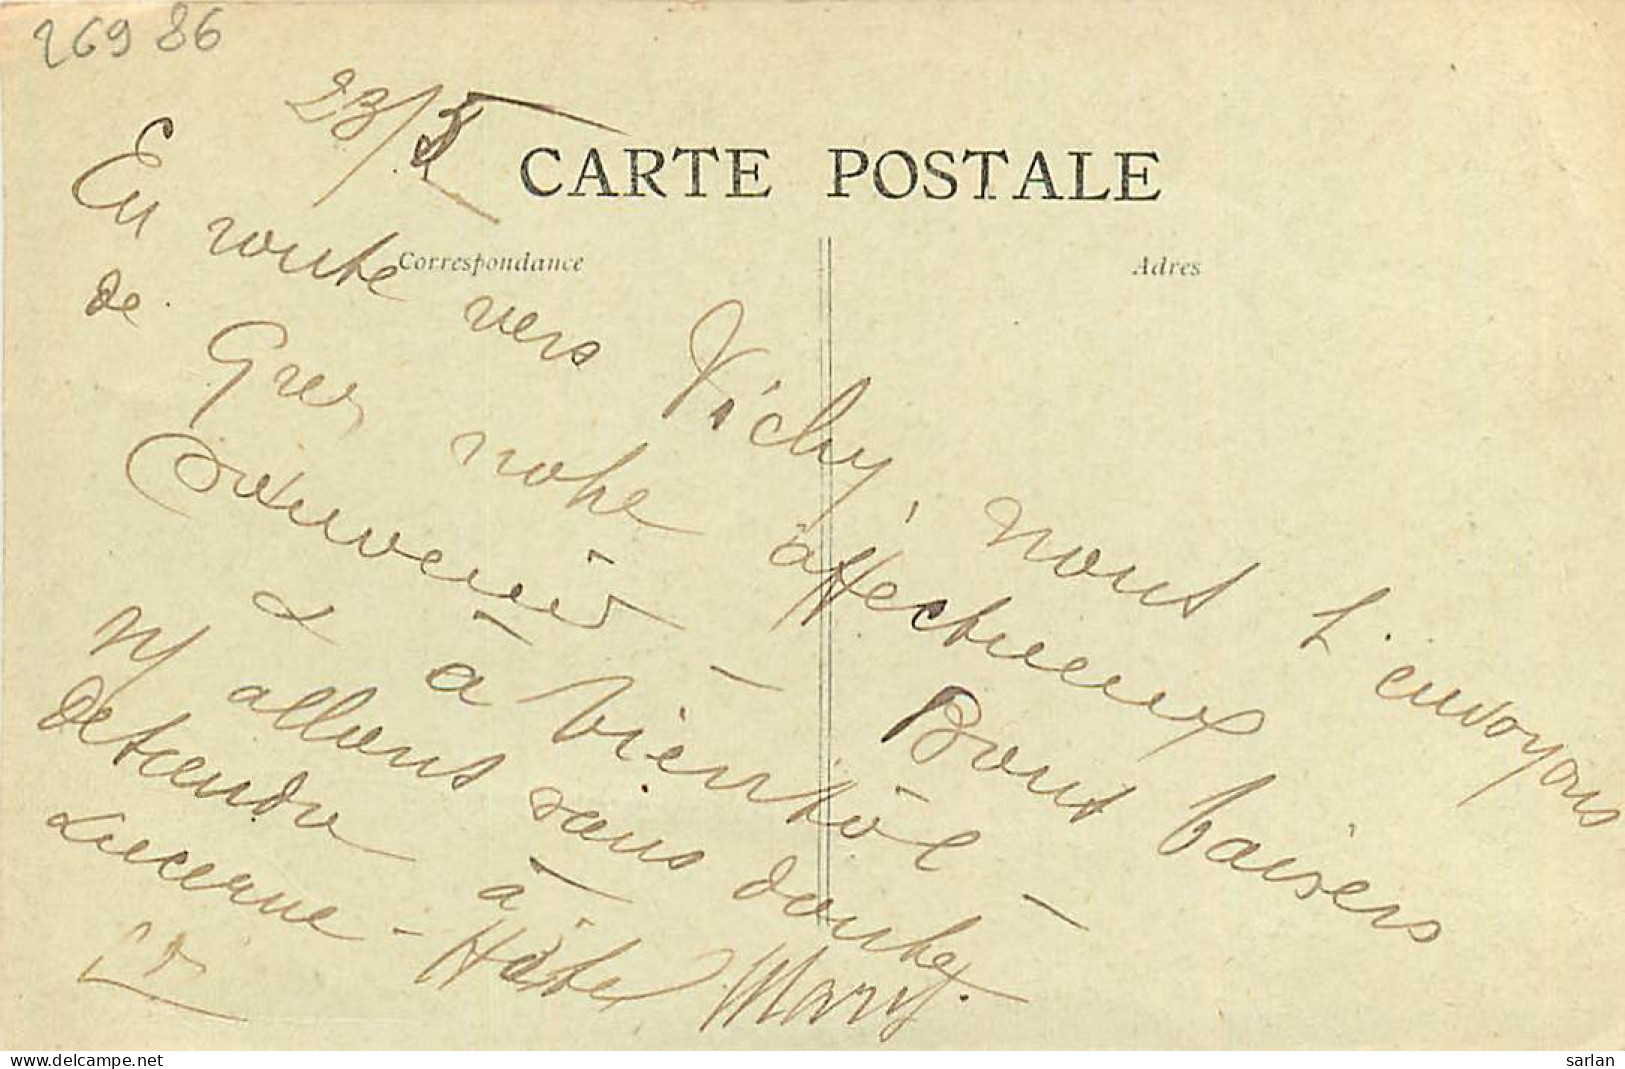 26986
23/5
CARTE POSTALE
Correspondance
Adres
En route vers Vichy, nous t'envoyons
de Grez notre affectueux
souvenir - Bons baisers
& à bientôt -
Ns allons sans doute
descendre à
Lucerne - Hôtel
Mary.
www.delcampe.net
sarlan